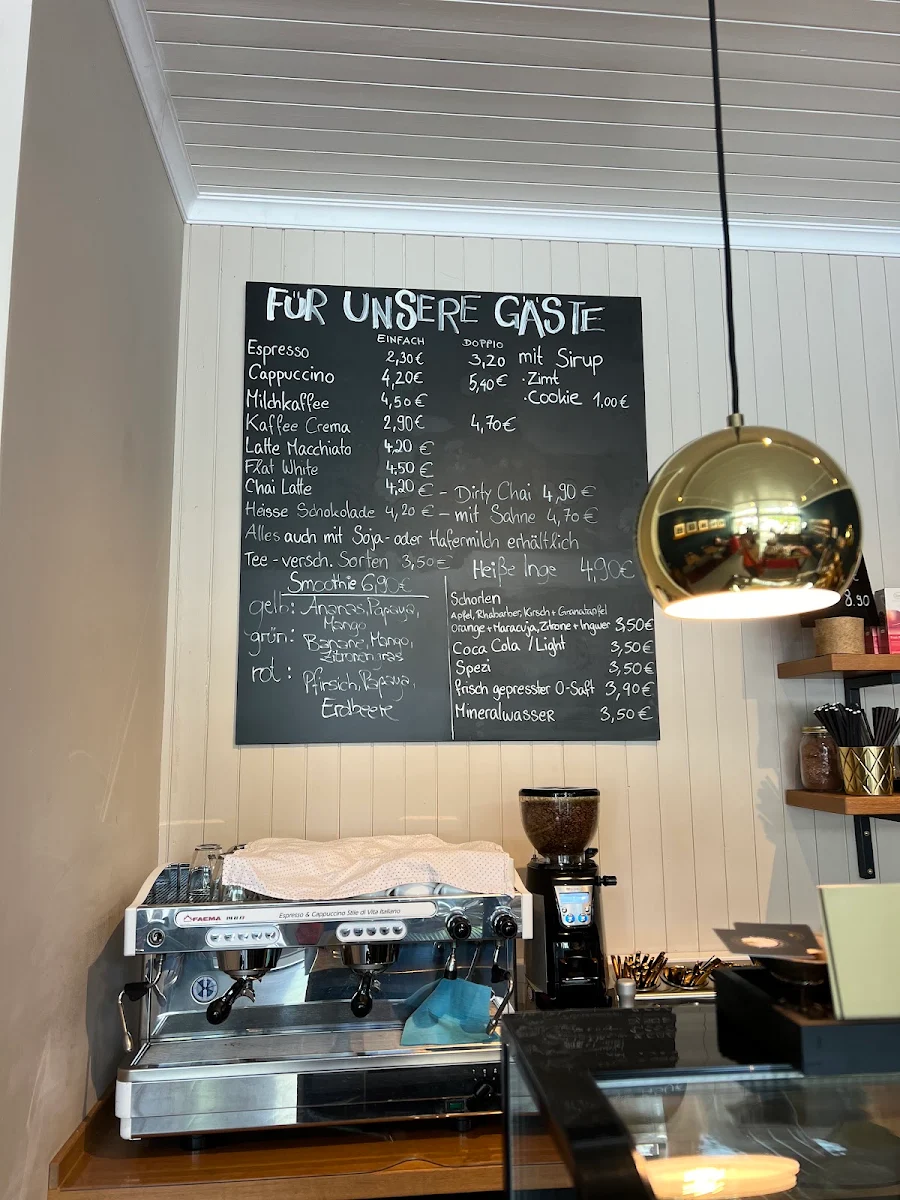 FÜR UNSERE GÄSTE
EINFACH DOPPIO
Espresso 2,30€ 3,20 mit Sirup
Cappuccino 4,20€ 5,40€ ·Zimt
Milchkaffee 4,50€ ·Cookie 1,00€
Kaffee Crema 2,90€ 4,70€
Latte Macchiato 4,20 €
Flat White 4,50 €
Chai Latte 4,20 € – Dirty Chai 4,90 €
Heisse Schokolade 4,20 € – mit Sahne 4,70 €
Alles auch mit Soja- oder Hafermilch erhältlich
Tee - versch. Sorten 3,50€ Heiße Inge 4,90€
Smoothie 6,90€
gelb: Ananas, Papaya,
Mango
grün: Banane, Mango,
Zitronengras
rot: Pfirsich, Papaya,
Erdbeere
Schorlen
Apfel, Rhabarber, Kirsch + Granatapfel
Orange + Maracuja, Zitrone + Ingwer 3,50€
Coca Cola / Light 3,50€
Spezi 3,50€
frisch gepresster O-Saft 3,90€
Mineralwasser 3,50€
8.90
FAEMA Espresso & Cappuccino Stile di Vita Italiano